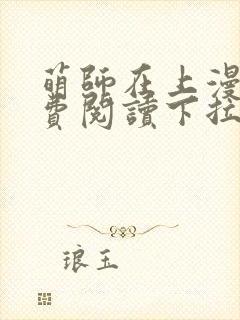 萌師在上漫
費閱讀下拉
琅玉